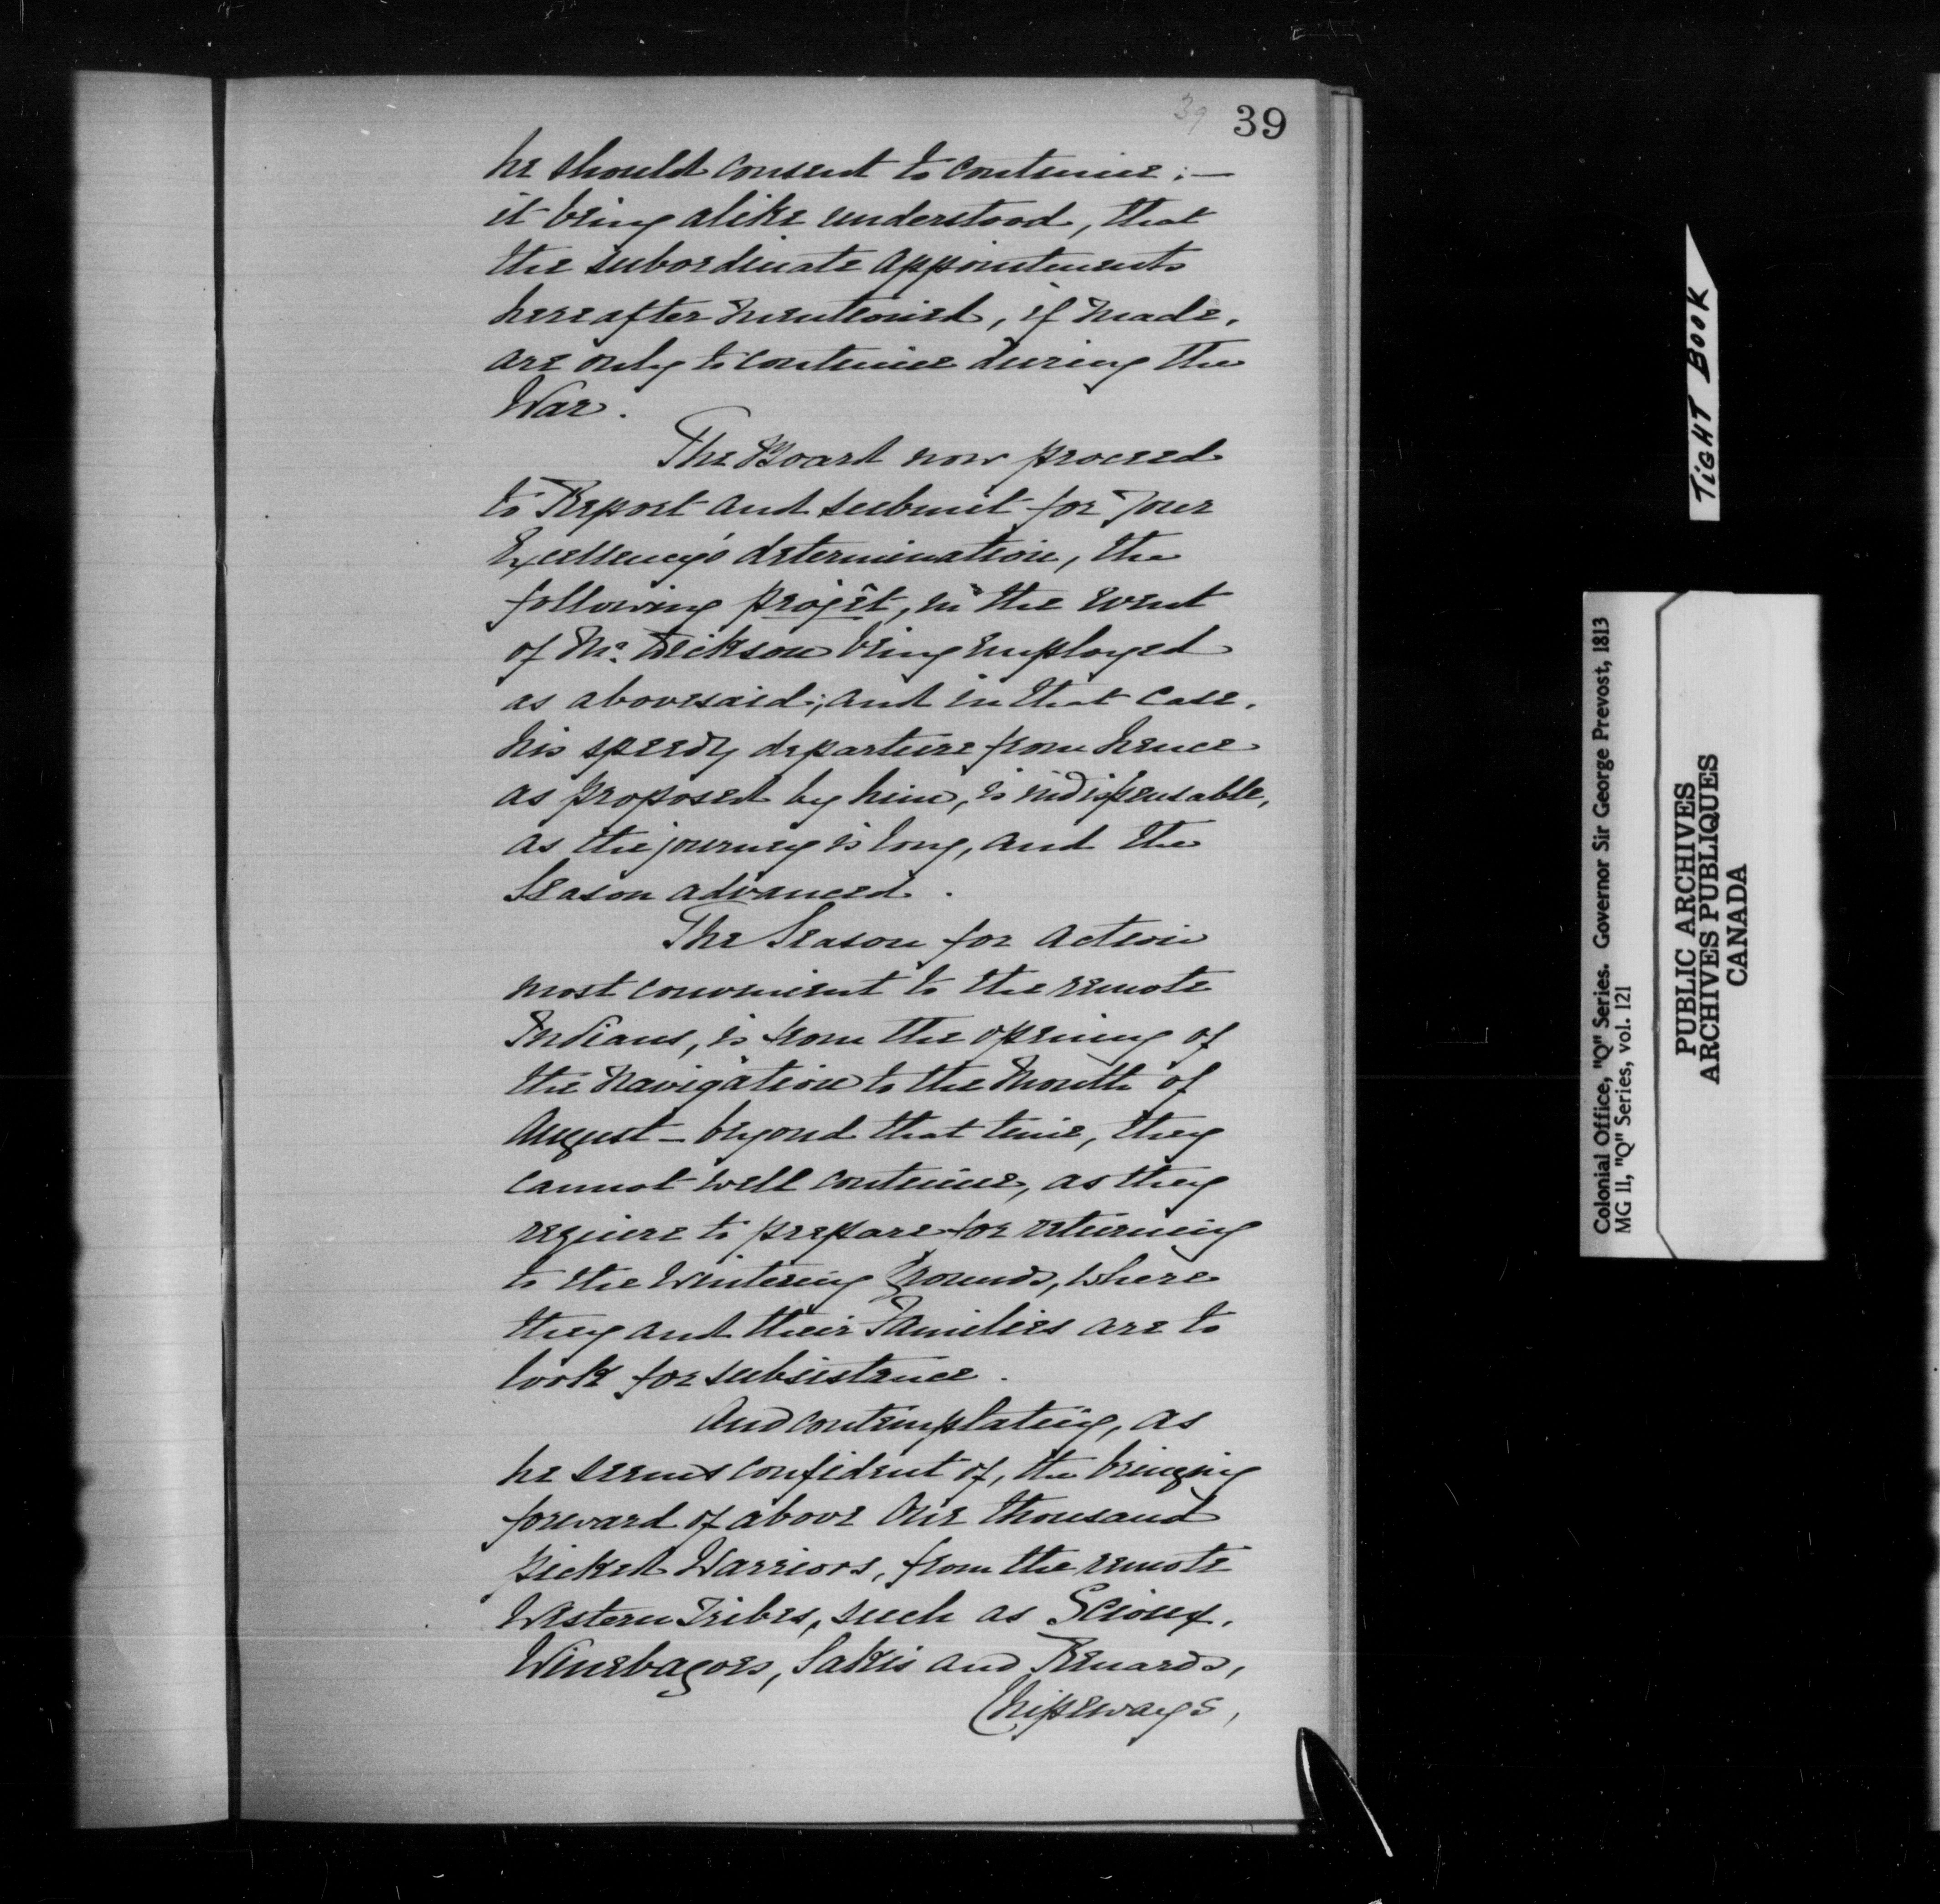 39 39
he should consent to continue;—
it being alike understood, that
the subordinate appointments
hereafter mentioned, if made,
are only to continue during the
War.
The Board now proceed
to Report and submit for Your
Excellency's determination, the
following projêt, in the event
of Mr. Dickson being employed
as abovesaid; and in that case,
his speedy departure from hence
as proposed by him, is indispensable,
as the journey is long, and the
Season advanced.
The Season for action
most convenient to the remote
Indians, is from the opening of
the Navigation to the Month of
August — beyond that time, they
cannot well continue, as they
require to prepare for returning
to the Wintering Grounds, where
they and their Families are to
look for subsistance.
And contemplating, as
he seems confident of, the bringing
forward of above One thousand
picked Warriors, from the remote
Western Tribes, such as Scioux,
Winebagoes, Sakis and Renards,
Chipeways,
TIGHT BOOK
Colonial Office, "Q" Series. Governor Sir George Prevost, 1813
MG 11, "Q" Series, vol. 121
PUBLIC ARCHIVES
ARCHIVES PUBLIQUES
CANADA